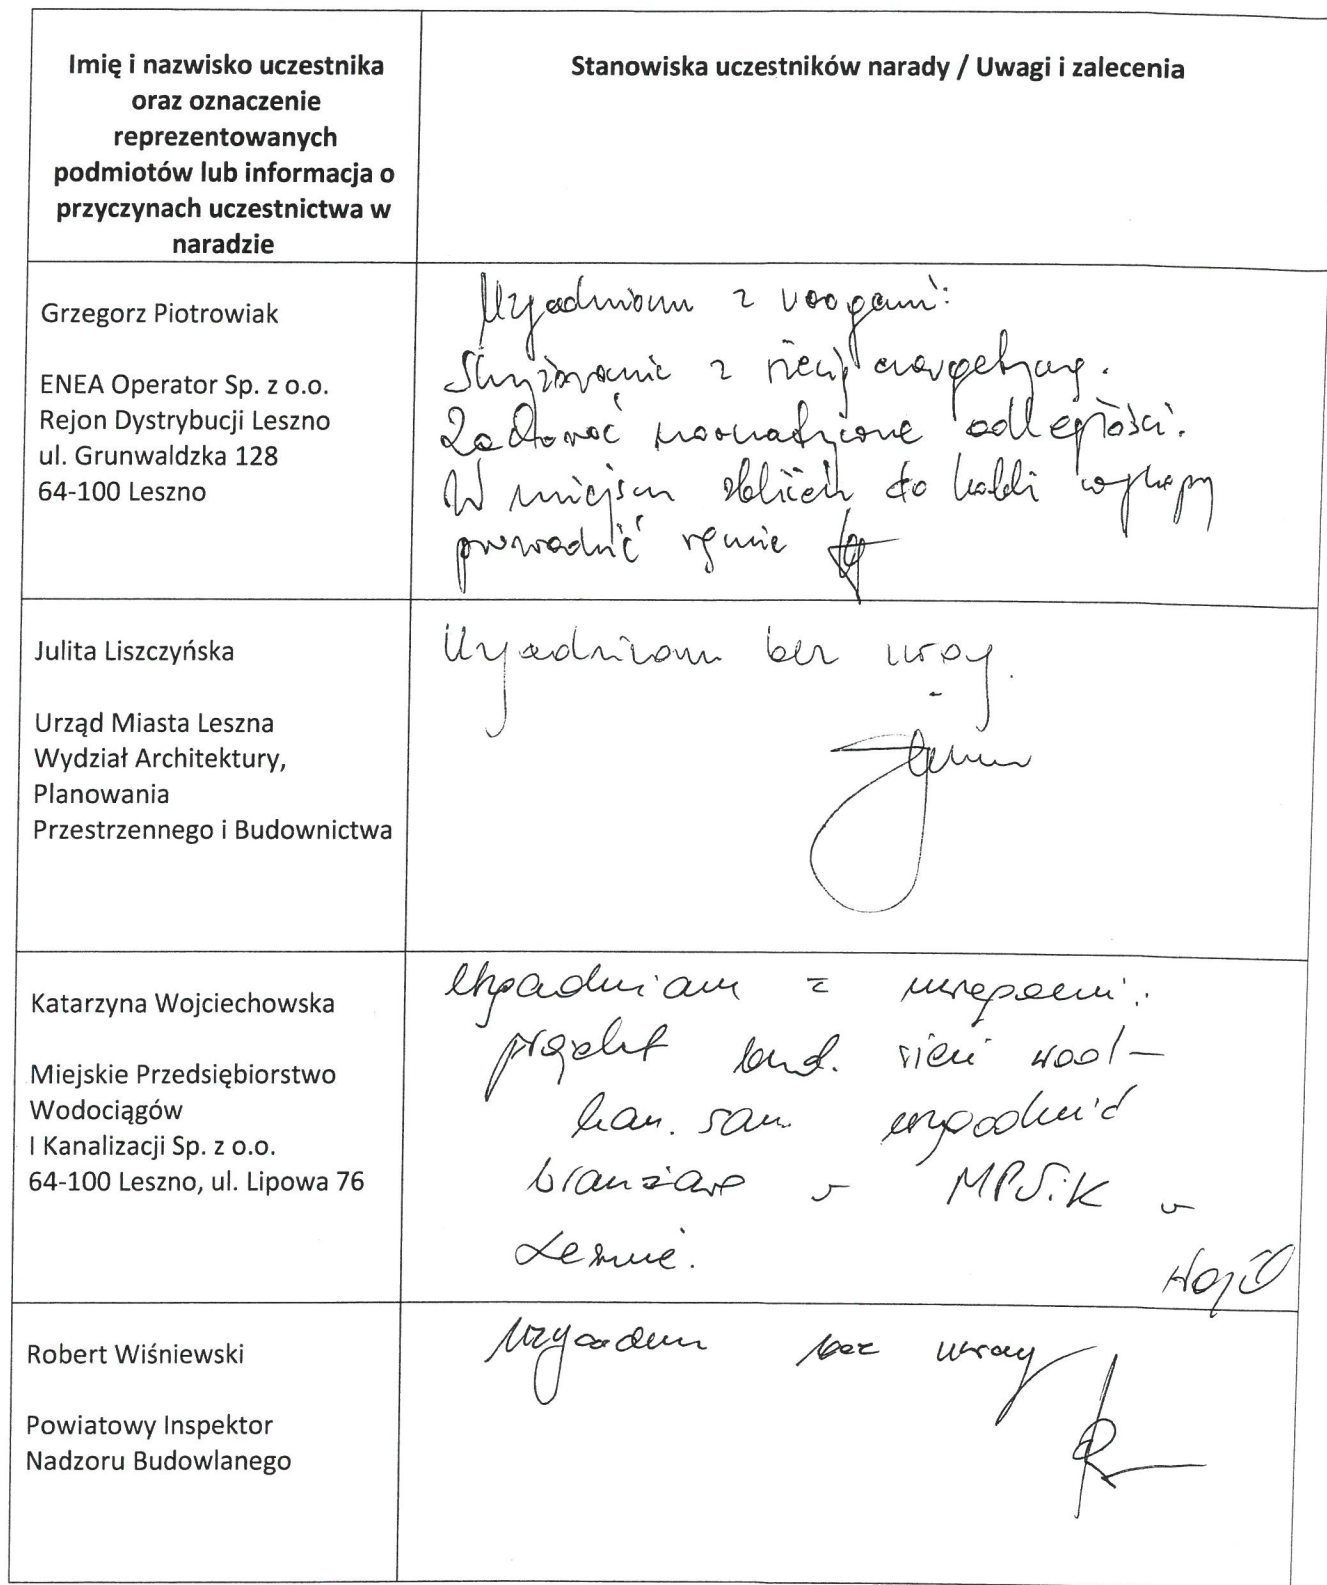 Imię i nazwisko uczestnika
oraz oznaczenie
reprezentowanych
podmiotów lub informacja o
przyczynach uczestnictwa w
naradzie
Stanowiska uczestników narady / Uwagi i zalecenia
Grzegorz Piotrowiak
ENEA Operator Sp. z o.o.
Rejon Dystrybucji Leszno
ul. Grunwaldzka 128
64-100 Leszno
Uzgadniam z uwagami:
Skrzyżowanie z siecią energetyczną.
Zachować normatywne odległości.
W miejscu zbliżeń do kabli wykopy
prowadzić ręcznie
Julita Liszczyńska
Urząd Miasta Leszna
Wydział Architektury,
Planowania
Przestrzennego i Budownictwa
Uzgadniam bez uwag.
Katarzyna Wojciechowska
Miejskie Przedsiębiorstwo
Wodociągów
I Kanalizacji Sp. z o.o.
64-100 Leszno, ul. Lipowa 76
Uzgadniam z uwagami:
projekt bud. sieci wod-
kan. san. uzgodnić
branżowo w MPWiK w
Lesznie.
Robert Wiśniewski
Powiatowy Inspektor
Nadzoru Budowlanego
bez uwag